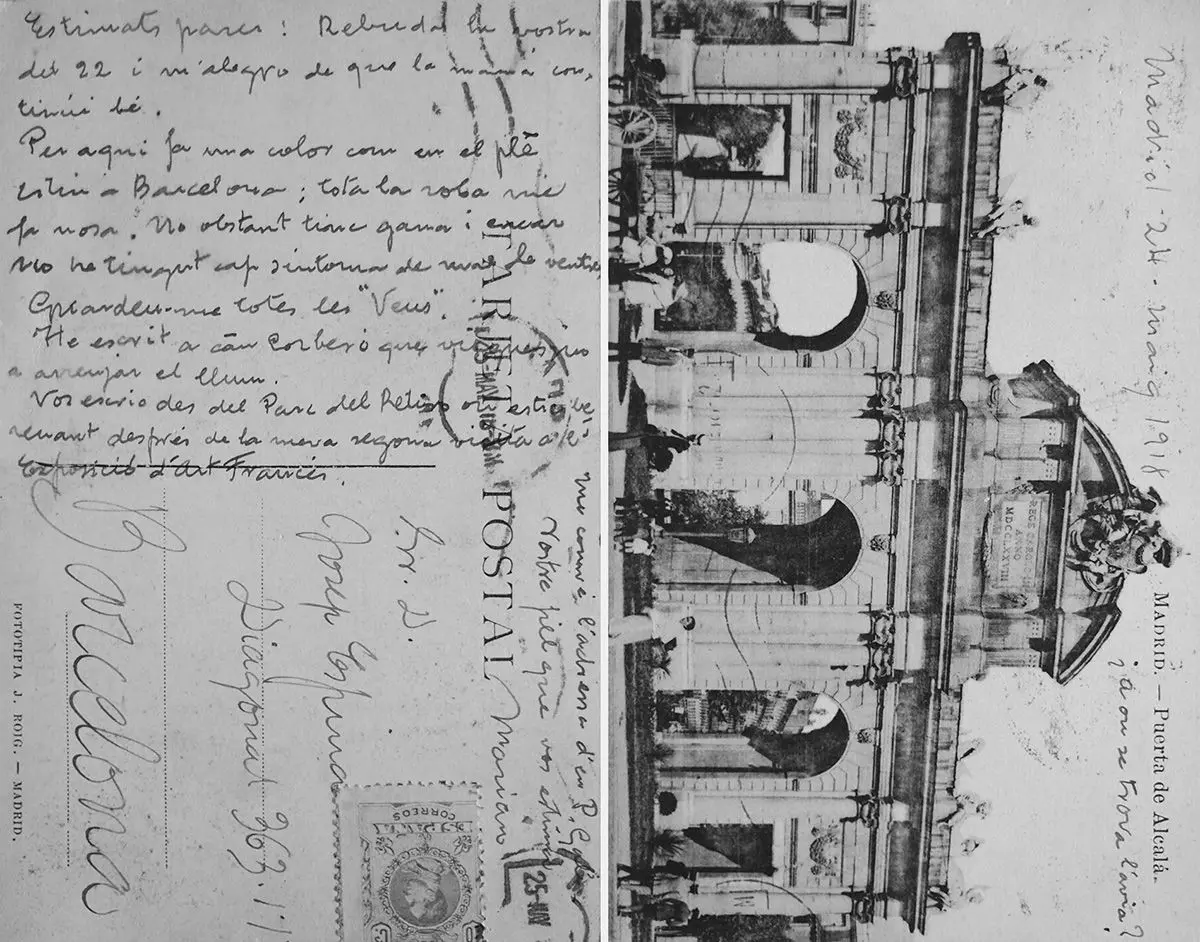 Estimats pares: Rebuda la vostra
del 22 i m'alegro de que la mamá con-
tinúi bé.
Per aqui fa una color com en el plé
estiu a Barcelona; tota la roba me
fa nosa. No obstant tinc gana i encar
no he tingut cap sintoma de mal de ventre
Guardeu-me totes les "Veus".
He escrit a càn Corberó que vingues
a arrenjar el llum.
Vos escric des del Parc del Retiro on estic be-
renant després de la meva segona visita a l'
Exposició d'Art Francés.
l'adressa d'en P.
Vostre fill que vos estima
Mariano
TARJETA POSTAL
Sr. D.
Josep Espinna
Diagonal 363. 1
Barcelona
FOTOTIPIA J. ROIG. — MADRID.
CORREOS
25-MAY
Madrid - 24 - maig 1918
REGE CAROLO III
ANNO
MDCCLXXVIII
MADRID. — Puerta de Alcalá.
¿a on se trova l'avia?